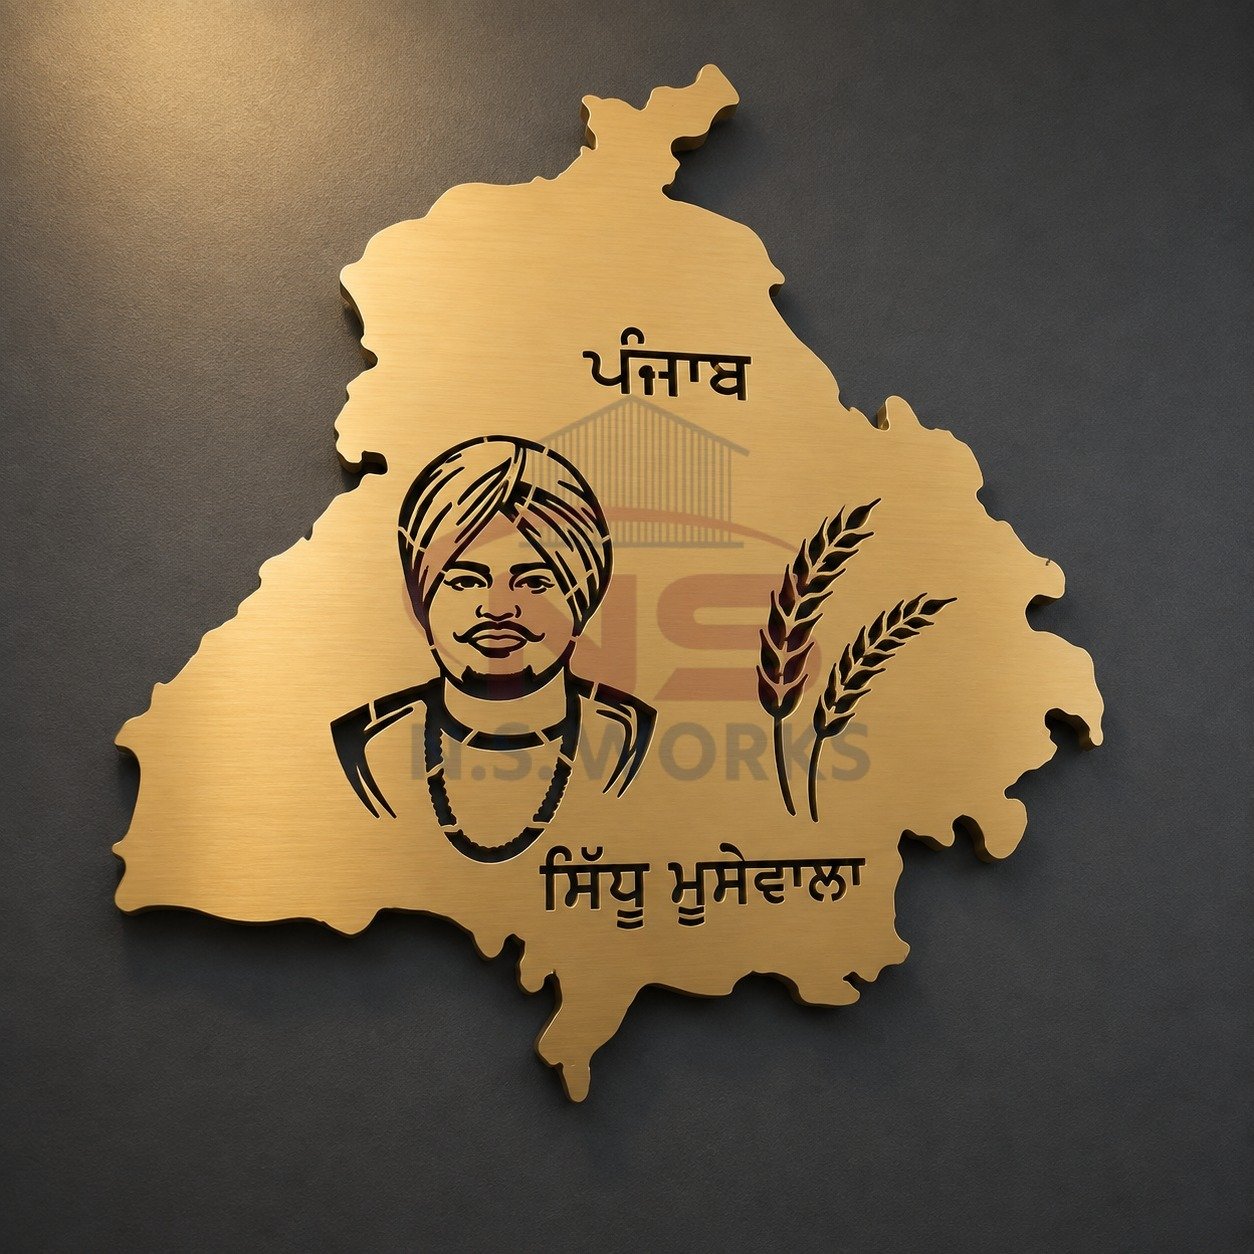 ਪੰਜਾਬ
NS
N.S.WORKS
ਸਿੱਧੂ ਮੂਸੇਵਾਲਾ